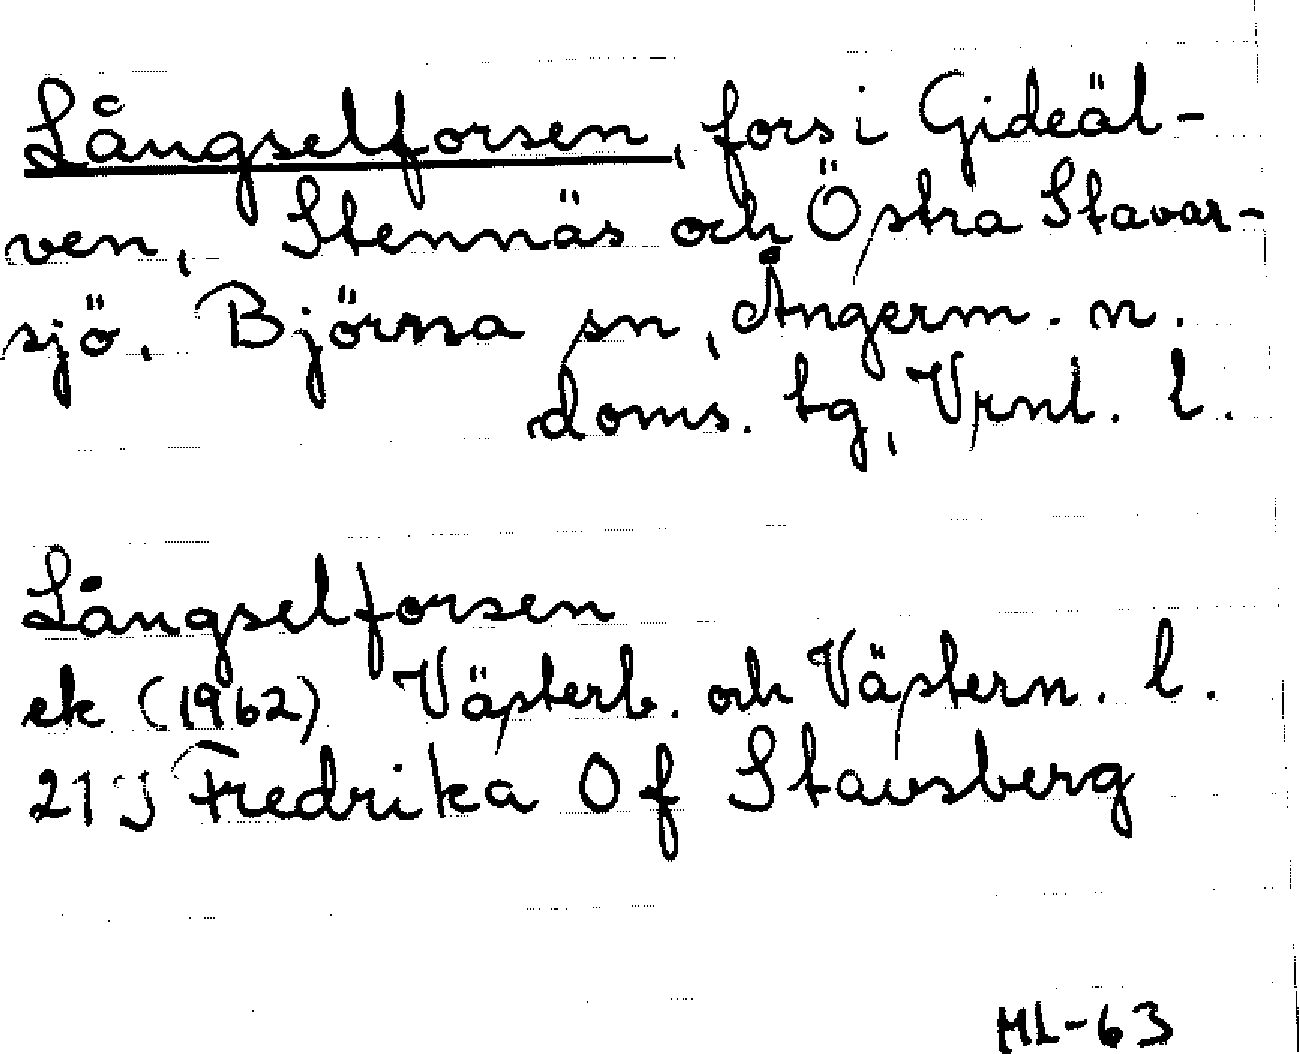 Långselforsen, fors i Gideäl-
ven, Stennäs och Östra Stavar-
sjö, Björna sn, Ångerm. n.
doms. tg, Vrnl. l.
Långselforsen
ek (1962) Västerb. och Västern. l.
21J Fredrika 0f Stavsberg
ML-63